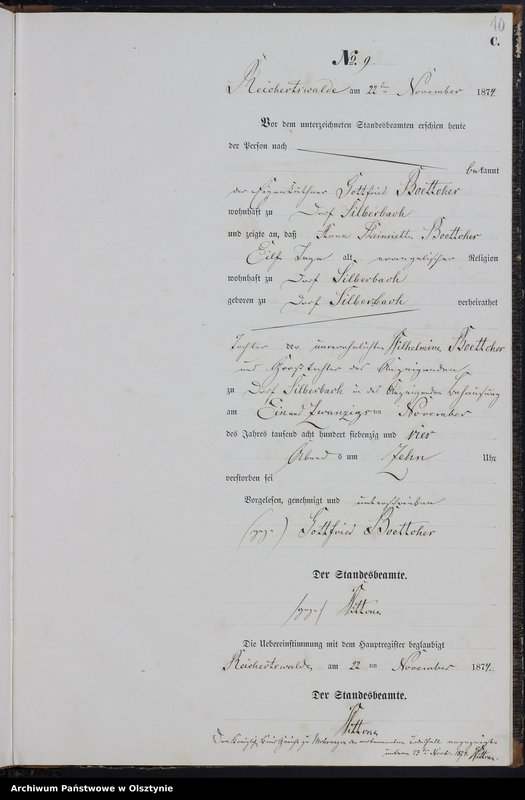 10
C.
No. 9
Reichertswalde am 22ten November 1874.
Vor dem unterzeichneten Standesbeamten erschien heute
der Person nach
bekannt
der Eigenkäthner Gottfried Boettcher
wohnhaft zu Dorf Silberbach
und zeigte an, daß Anna Heinriette Boettcher
Eilf Tage alt, evangelischer Religion
wohnhaft zu Dorf Silberbach
geboren zu Dorf Silberbach verheirathet
Tochter der unverehelichten Wilhelmine Boettcher
und Großtochter des Anzeigenden
zu Dorf Silberbach in des Anzeigenden Behausung
am Ein und Zwanzigsten November
des Jahres tausend acht hundert siebenzig und vier
Abends um Zehn Uhr
verstorben sei
Vorgelesen, genehmigt und unterschrieben
(gez.) Gottfried Boettcher
Der Standesbeamte.
(gez.)
Die Uebereinstimmung mit dem Hauptregister beglaubigt
Reichertswalde, am 22 ten November 1874.
Der Standesbeamte.
Archiwum Państwowe w Olsztynie